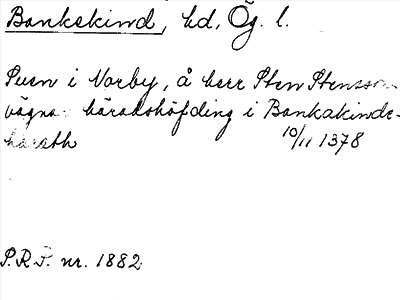 Bankekind, hd, Ög. l.
Puen i Norby, å herr Sten Stenssons
vägna häradshöfding i Bankakinds-
härath 10/11 1378
P.R.P. nr. 1882